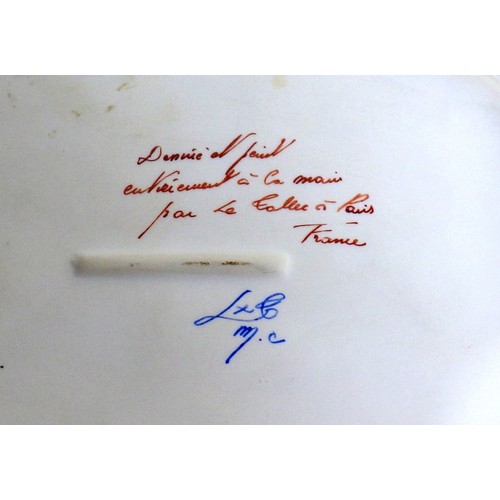 Dessiné et peint
entièrement à la main
par Le Tallec à Paris
France
LxT
m.c